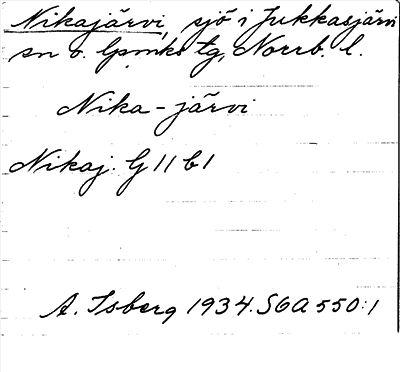 Nikajärvi, sjö i Jukkasjärvi
sn o. lpmks tg, Norrb. l.
Nika-järvi
Nikaj. G 11 b 1
A. Isberg 1934. SGA 550:1